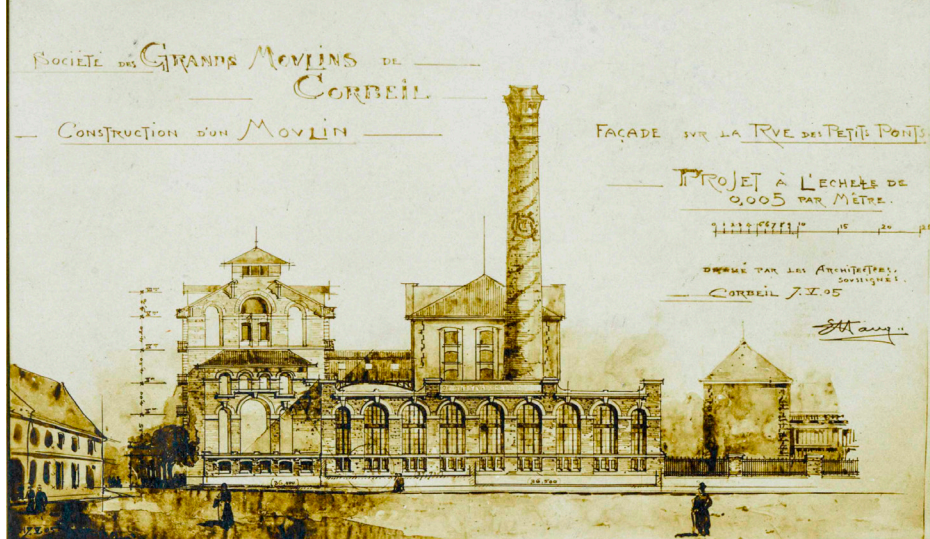 SOCIÉTÉ DES GRANDS MOVLINS DE
CORBEIL
CONSTRUCTION D'UN MOVLIN
FAÇADE SVR LA RVE DES PETITS PONTS
PROJET À L'ECHELLE DE
0,005 PAR MÈTRE.
0 1 2 3 4 5 6 7 8 9 10 15 20 25
DRESSÉ PAR LES ARCHITECTES,
SOUSSIGNÉS.
CORBEIL 7.V.05